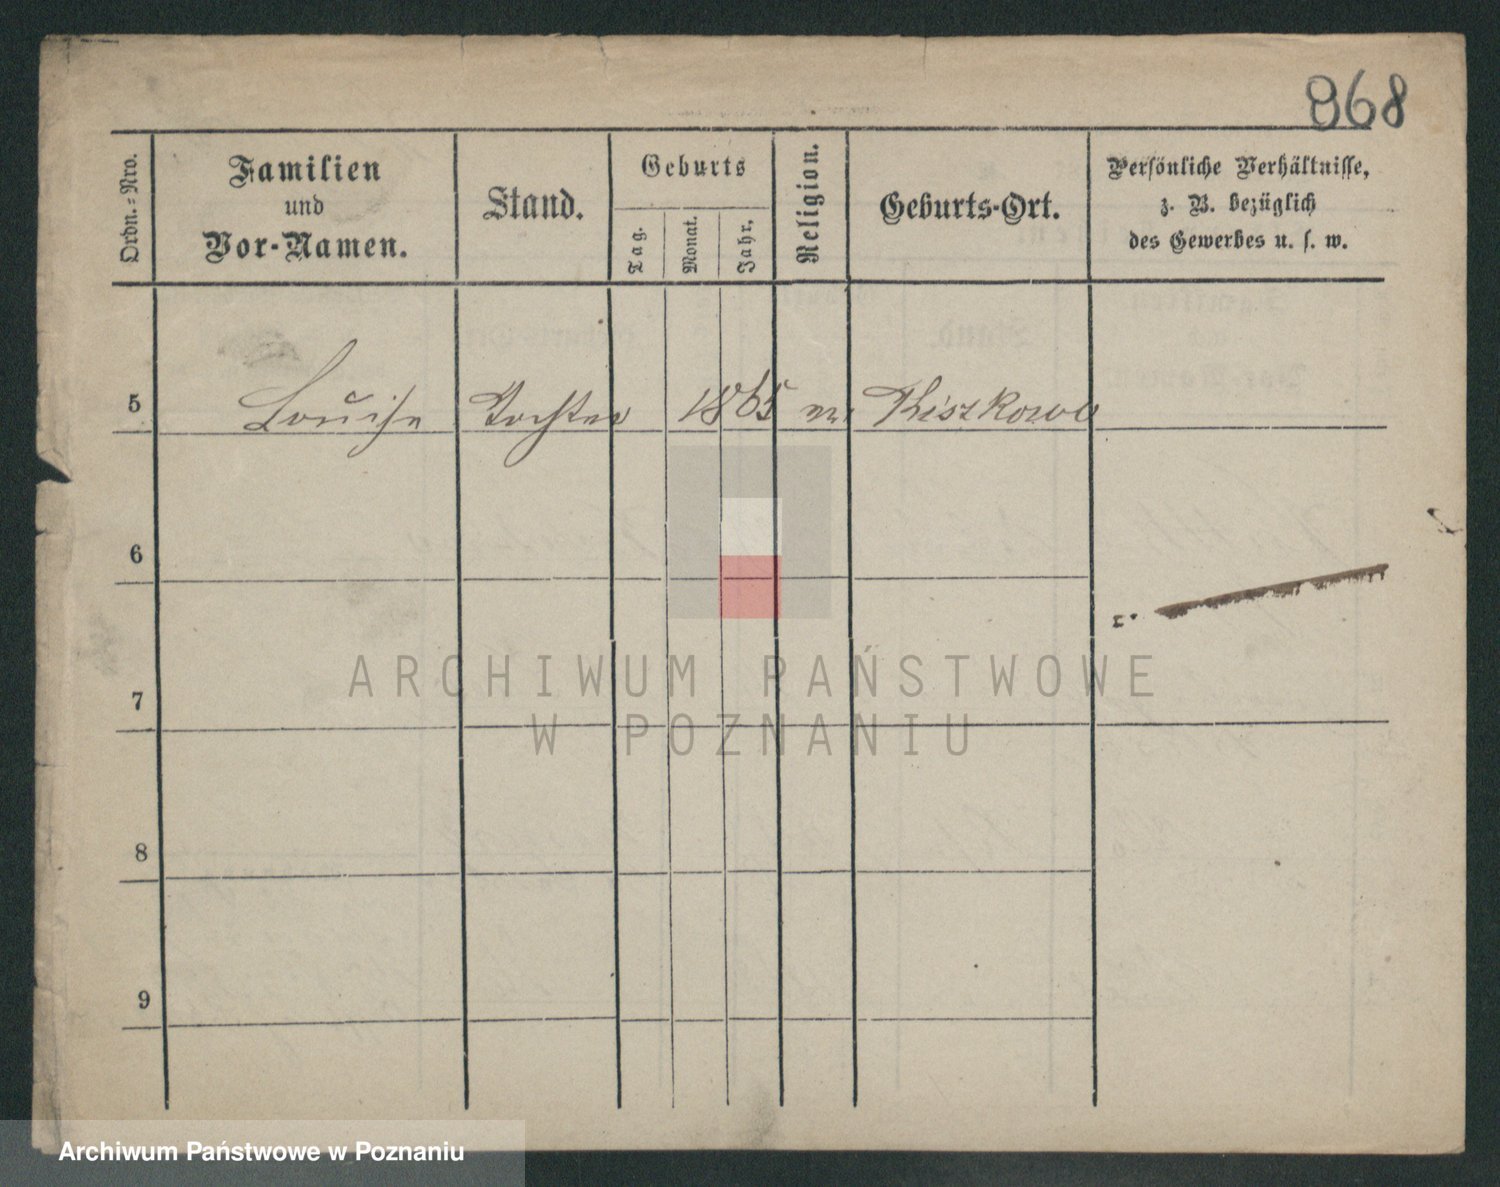 868
Ordn.=Nro.
Familien
und
Vor-Namen.
Stand.
Geburts
Tag.
Monat.
Jahr.
Religion.
Geburts-Ort.
Persönliche Verhältnisse,
z. B. bezüglich
des Gewerbes u. s. w.
5 Louise Tochter 1865
6
7
8
9
ARCHIWUM PAŃSTWOWE
W POZNANIU
Archiwum Państwowe w Poznaniu